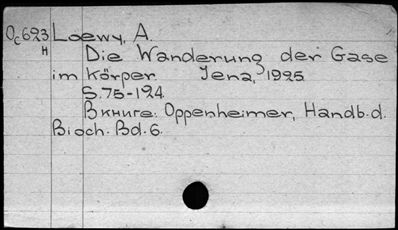 Oc623 Loewy, A.
H
Die Wanderung der Gase
im Körper Jena, 1925
S.75-124
В книге: Oppenheimer, Handb.d.
Bioch. Bd.6.